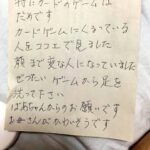 特にカードのゲームは
だめです
カードゲームに人るっている
人をココエで見ました
顔まで変な人になっていました
ぜったいゲームから足を
洗って下さい
ばあちゃんからのお願いです
お母さんがかわいそうです